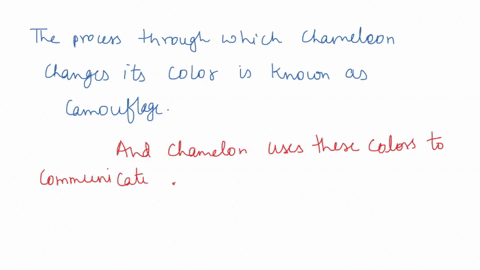 The process through which Chameleon
Changes its Color is known as
Camouflage.
And Chamelon uses these colors to
Communicate.